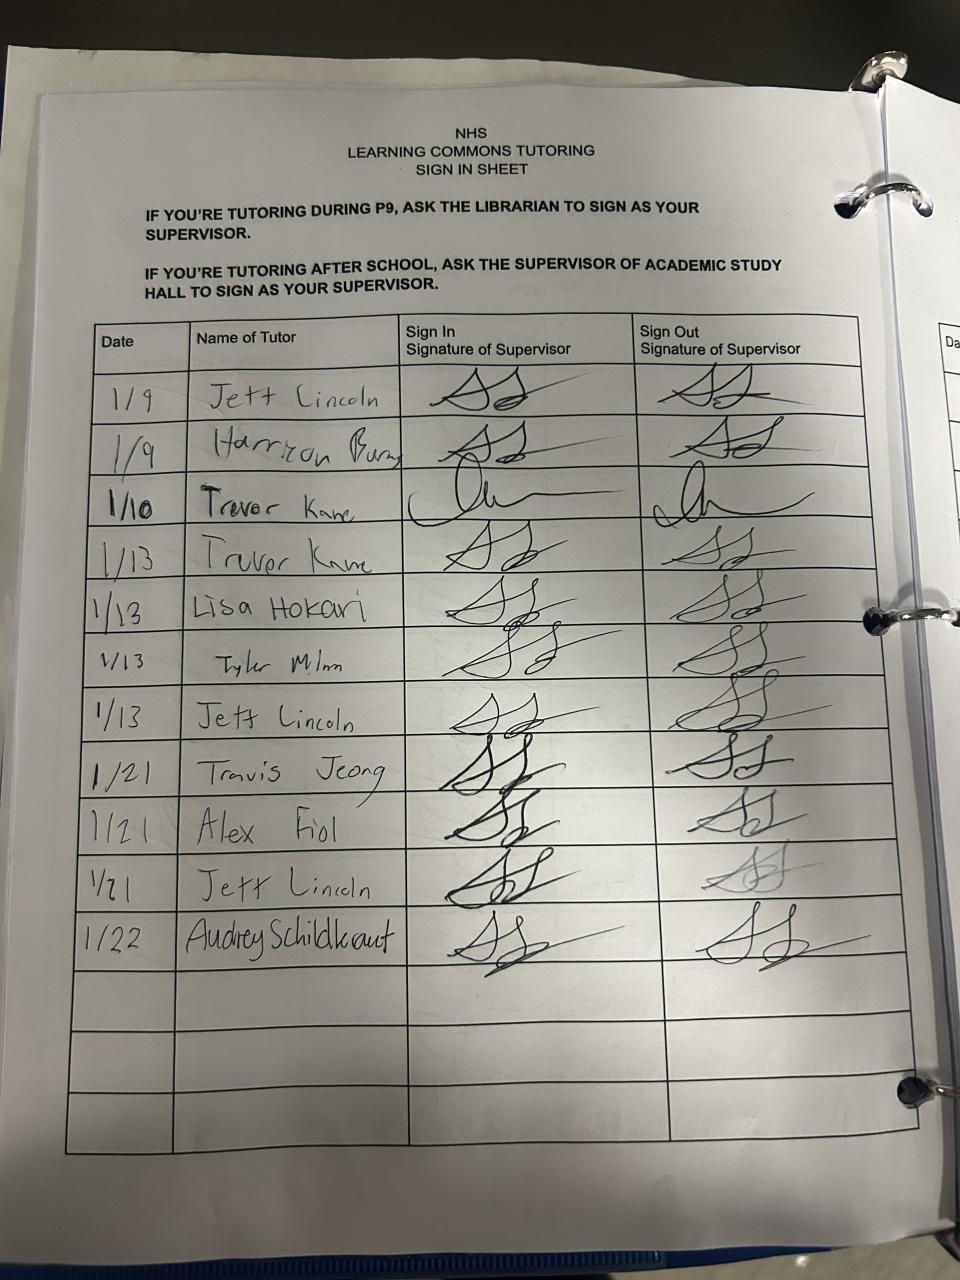 NHS
LEARNING COMMONS TUTORING
SIGN IN SHEET
IF YOU'RE TUTORING DURING P9, ASK THE LIBRARIAN TO SIGN AS YOUR
SUPERVISOR.
IF YOU'RE TUTORING AFTER SCHOOL, ASK THE SUPERVISOR OF ACADEMIC STUDY
HALL TO SIGN AS YOUR SUPERVISOR.
Date Name of Tutor Sign In Signature of Supervisor Sign Out Signature of Supervisor
1/9 Jett Lincoln
1/9 Harrison
1/10 Trevor Kane
1/13 Trevor Kane
1/13 Lisa Hokari
1/13 Tyler
1/13 Jett Lincoln
1/21 Travis Jeong
1/21 Alex Fiol
1/21 Jett Lincoln
1/22 Audrey Schildkraut
Da